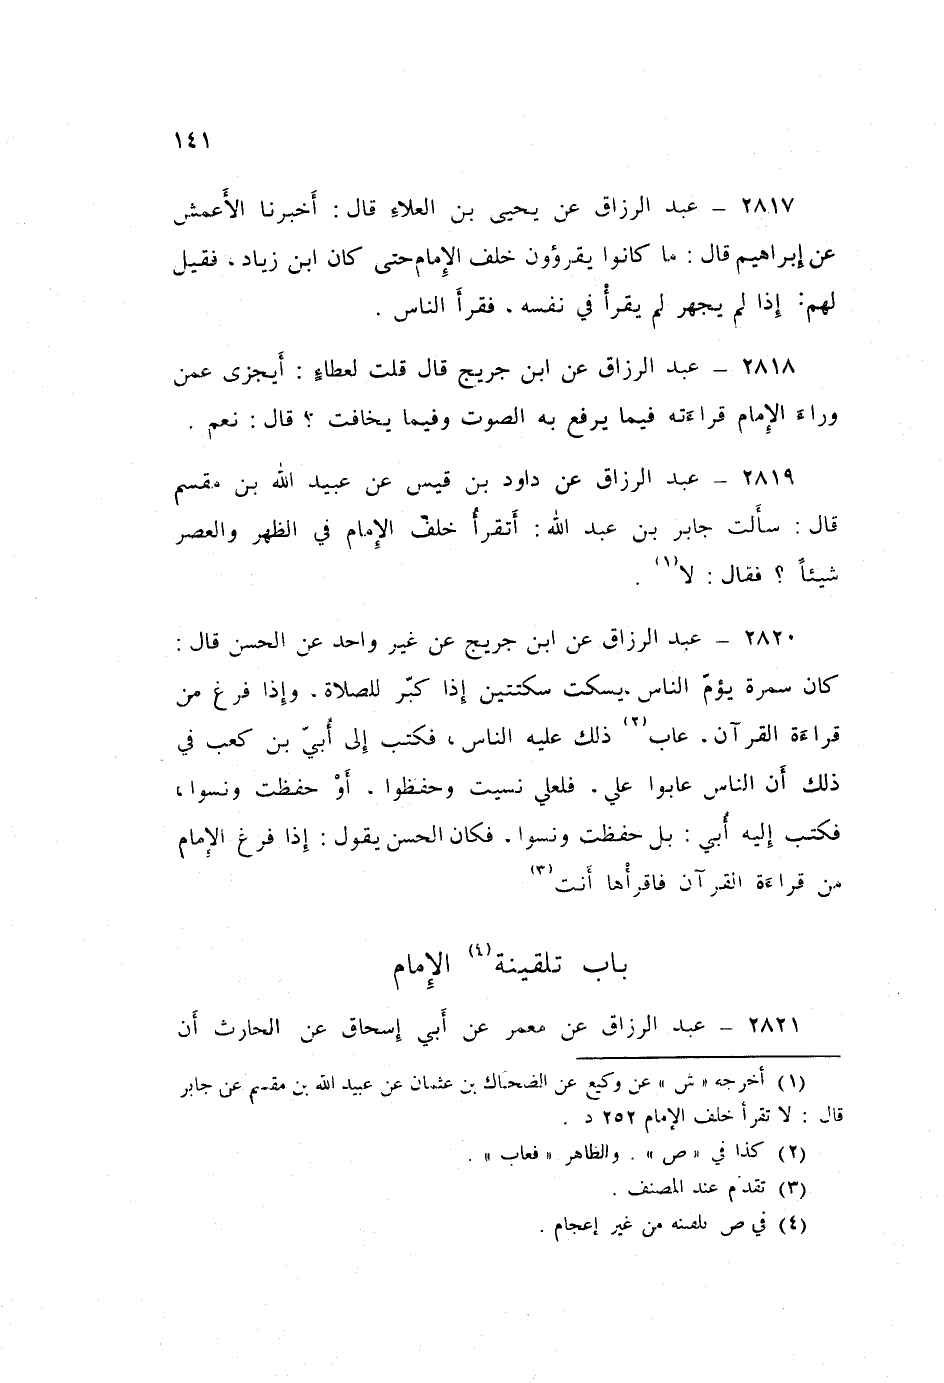 ١٤١
٢٨١٧ – عبد الرزاق عن يحيى بن العلاءِ قال : أَخبرنا الأَعمش
عن إبراهيم قال : ما كانوا يقرؤون خلف الإِمام حتى كان ابن زياد ، فقيل
لهم : إِذا لم يجهر لم يقرأْ في نفسه . فقرأَ الناس .
٢٨١٨ – عبد الرزاق عن ابن جريج قال قلت لعطاءٍ : أَيجزى عمن
وراءَ الإِمام قراءَته فيما يرفع به الصوت وفيما يخافت ؟ قال : نعم .
٢٨١٩ – عبد الرزاق عن داود بن قيس عن عبيد الله بن مقسم
قال : سأَلت جابر بن عبد الله : أَتقرأُ خلف الإِمام في الظهر والعصر
شيئاً ؟ فقال : لا (١) .
٢٨٢٠ – عبد الرزاق عن ابن جريج عن غير واحد عن الحسن قال :
كان سمرة يؤمّ الناس . يسكت سكتتين إِذا كبّر للصلاة . وإِذا فرغ من
قراءَة القرآن . عاب (٢) ذلك عليه الناس ، فكتب إِلى أُبيّ بن كعب في
ذلك أَن الناس عابوا علي . فلعلي نسيت وحفظوا . أَوْ حفظت ونسوا ،
فكتب إِليه أُبي : بل حفظت ونسوا . فكان الحسن يقول : إِذا فرغ الإِمام
من قراءَة القرآن فاقرأْها أَنت (٣)
باب تلقينة (٤) الإِمام
٢٨٢١ – عبد الرزاق عن معمر عن أَبي إِسحاق عن الحارث أَن
(١) أخرجه « ش » عن وكيع عن الضحاك بن عثمان عن عبيد الله بن مقسم عن جابر
قال : لا تقرأ خلف الإمام ٢٥٢ د .
(٢) كذا في « ص » . والظاهر « فعاب » .
(٣) تقدّم عند المصنف .
(٤) في ص من غير إعجام .